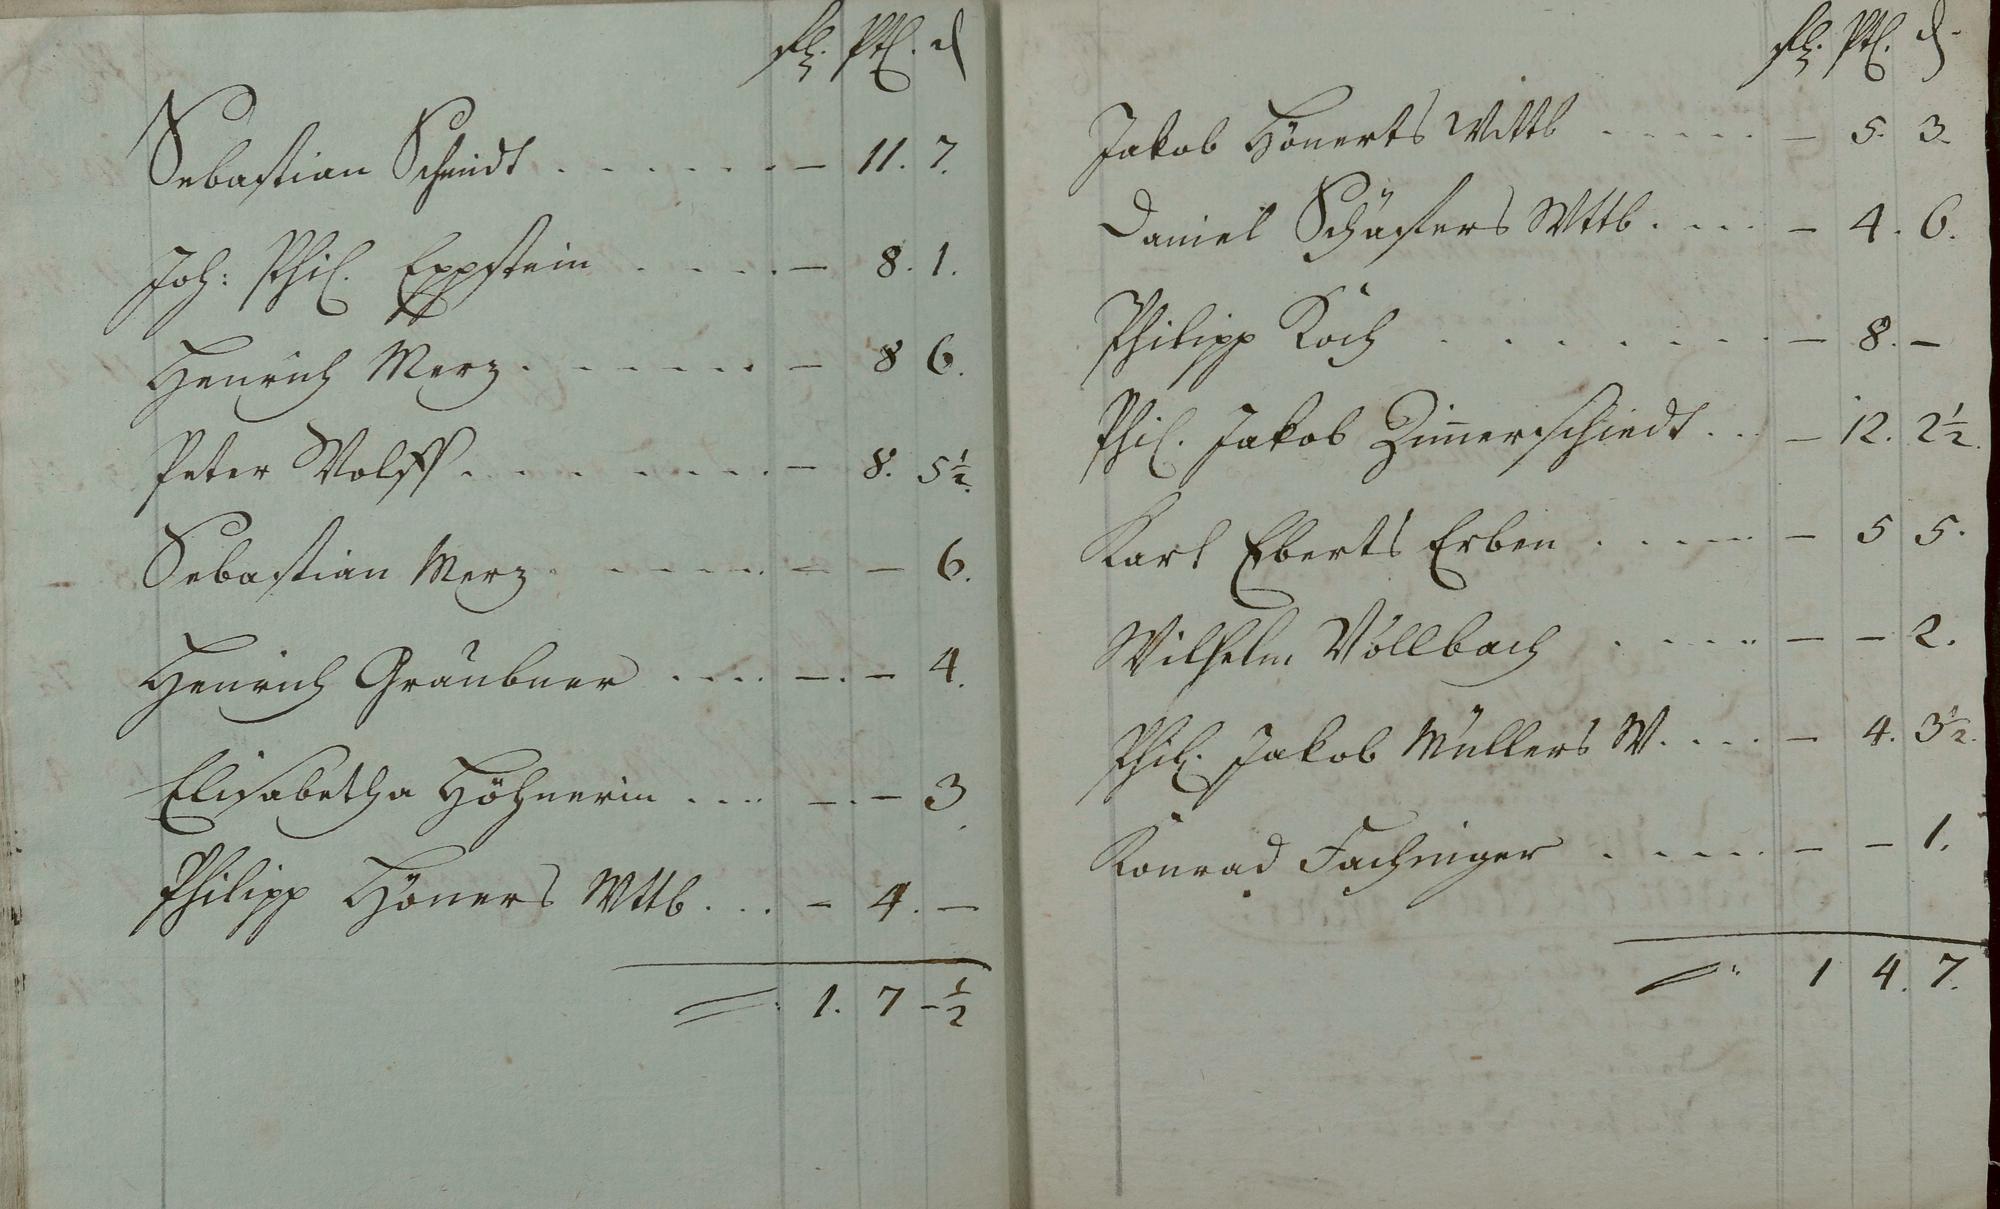 fl. Ptl. d
Sebastian Schmidt . . . . . . . — 11. 7.
Joh: Phil. Eppstein . . . . . — 8. 1.
Henrich Merz . . . . . . — 8 6.
Peter Wolff . . . . . . . — 8. 5 1/2.
Sebastian Merz . . . . . . — — 6.
Henrich Graubner . . . . — . — 4.
Elisabetha Höhnerin . . . . — . — 3.
Philipp Höners Wttb . . . — 4. —
= 1. 7 - 1/2
fl. Ptl. d.
Jakob Hönerts Wittb . . . . . — 5. 3.
Daniel Schäfers Wttb . . . . — 4. 6.
Philipp Koch . . . . . . . — 8. —
Phil. Jakob Zim̄erschiedt . . . — 12. 2 1/2.
Karl Eberts Erben . . . . . — 5 5.
Wilhelm Vollbach . . . . . — — 2.
Phil. Jakob Müllers W. . . . — 4. 3 1/2.
Konrad Fachinger . . . . . — — 1.
= 1 4. 7.